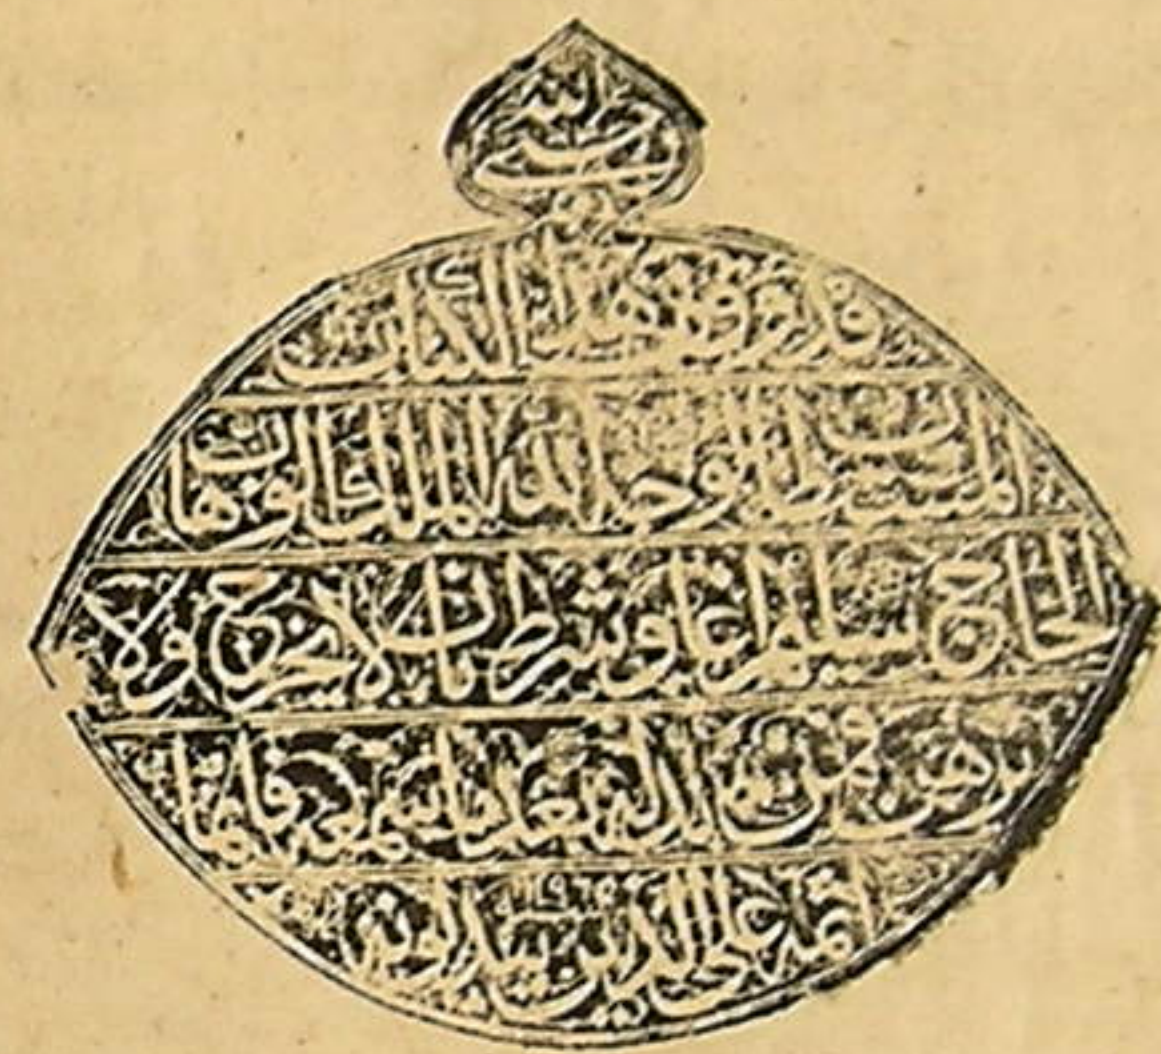 حسبي الله
قد وقف هذا الكتاب
المستطاب لوجه الله الملك الوهاب
الحاج سليم اغا وشرط بان لا يخرج ولا
يرهن فمن بدله بعد ما سمعه فانما
اثمه على الذين يبدلونه